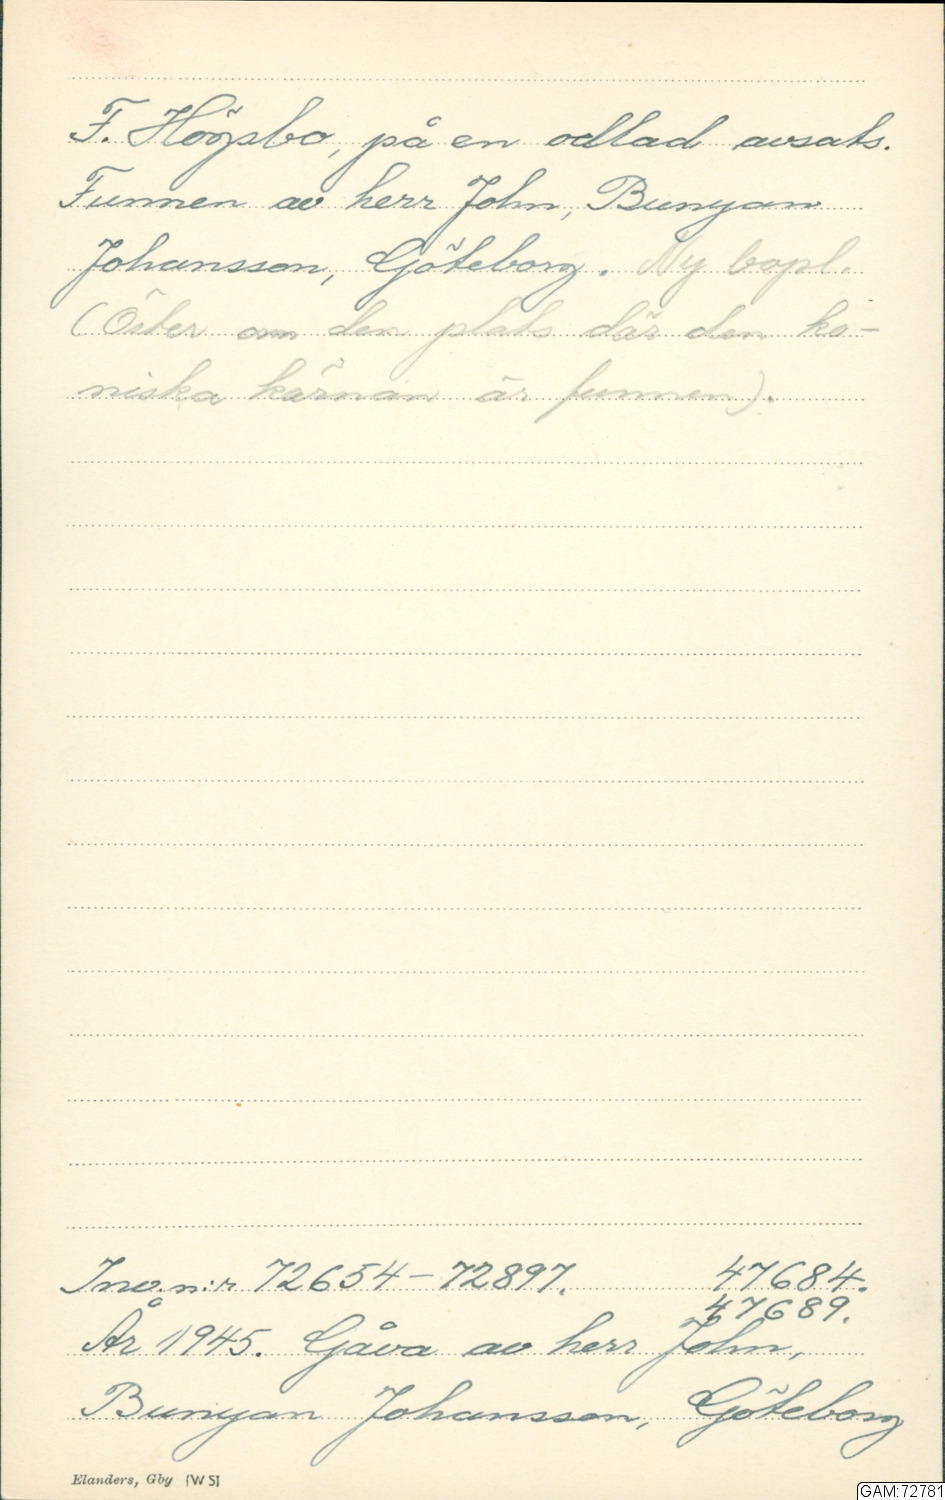 F. Högsbo, på en odlad avsats.
Funnen av herr John, Bunyan
Johansson, Göteborg. Ny bopl.
(Öster om den plats där den ko-
niska kärnan är funnen).
Inv.n:r 72654-72897. 47684.
47689.
År 1945. Gåva av herr John,
Bunyan Johansson, Göteborg
Elanders, Gby (W S)
GAM:72781